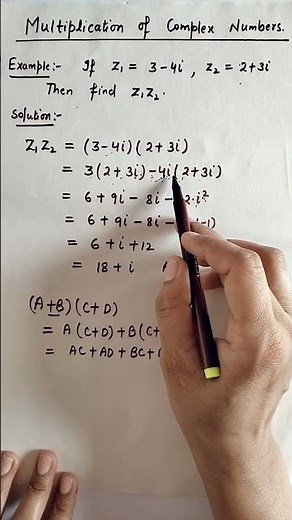 Multiplication of Complex Numbers.
Example:- If Z₁ = 3-4i, Z₂ = 2+3i
Then find Z₁Z₂.
Solution:-
Z₁Z₂ = (3-4i)(2+3i)
= 3(2+3i)-4i(2+3i)
= 6+9i-8i-2·i²
= 6+9i-8i- i-1)
= 6+i+12
= 18+i
(A+B)(C+D)
= A(C+D)+B(C+
= AC+AD+BC+